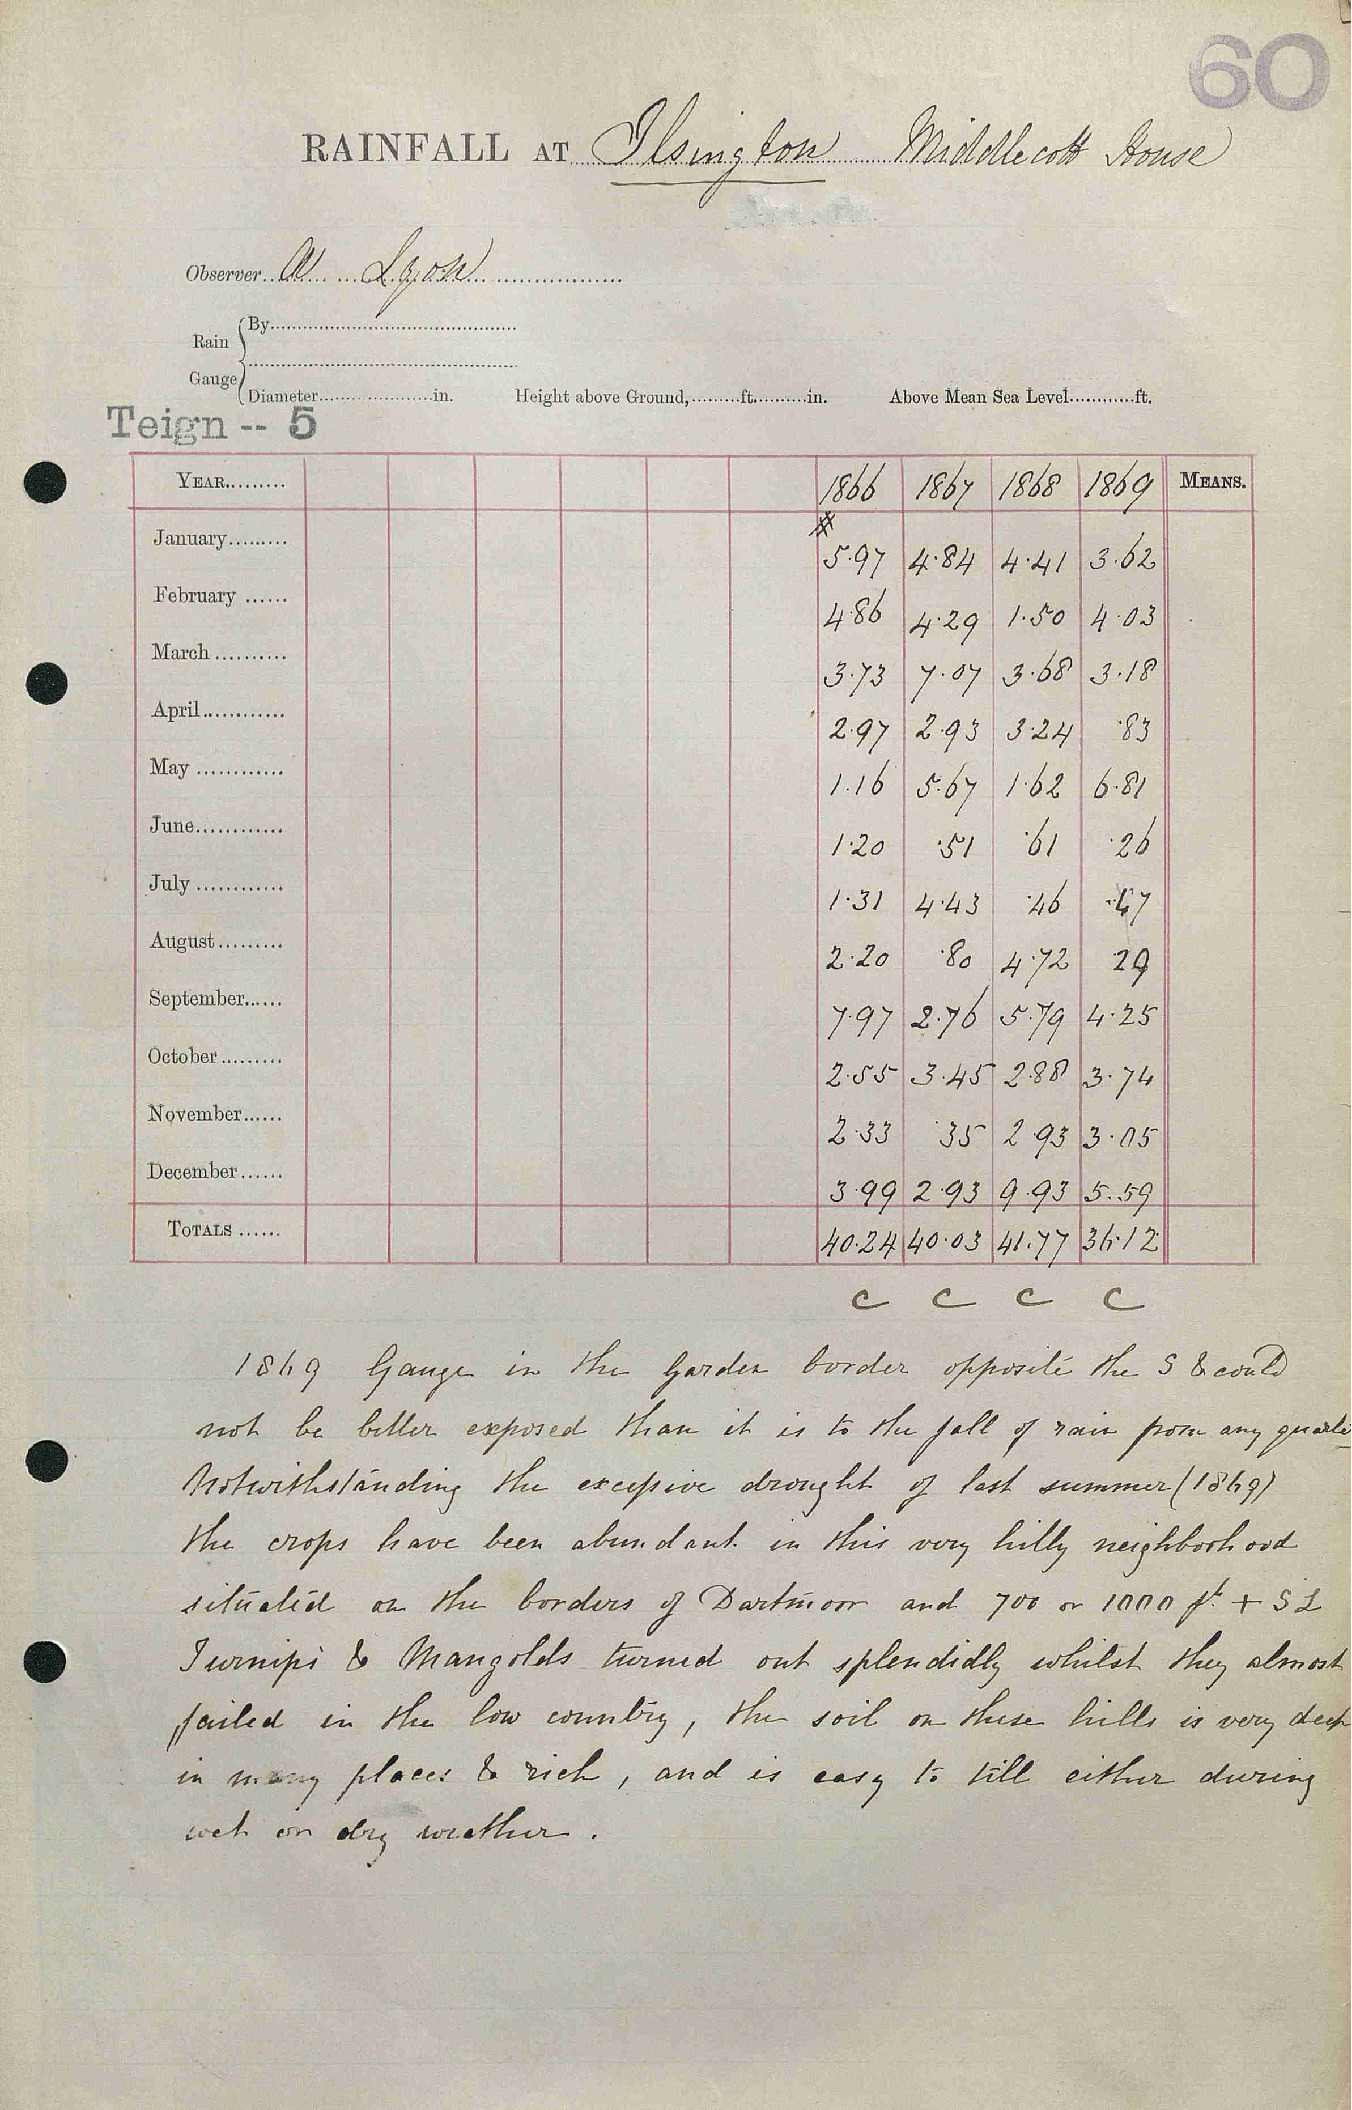 60
RAINFALL AT Ilsington Middlecott House
Observer A Lyon
Rain Gauge
By
Diameter in. Height above Ground, ft. in. Above Mean Sea Level ft.
Teign -- 5
YEAR 1866 1867 1868 1869 MEANS.
January 5.97 4.84 4.41 3.62
February 4.86 4.29 1.50 4.03
March 3.73 7.07 3.68 3.18
April 2.97 2.93 3.24 .83
May 1.16 5.67 1.62 6.81
June 1.20 .51 .61 .26
July 1.31 4.43 .46 .47
August 2.20 .80 4.72 29
September 7.97 2.76 5.79 4.25
October 2.55 3.45 2.88 3.74
November 2.33 .35 2.93 3.05
December 3.99 2.93 9.93 5.59
TOTALS 40.24 40.03 41.77 36.12
C C C C
1869 Gauge in the Garden border opposite the S & could
not be better exposed than it is to the fall of rain from any quarter
Notwithstanding the excessive drought of last summer (1869)
the crops have been abundant in this very hilly neighborhood
situated on the borders of Dartmoor and 700 or 1000 ft + S L
Turnips & Mangolds turned out splendidly whilst they almost
failed in the low country, the soil on these hills is very deep
in many places & rich, and is easy to till either during
wet or dry weather.